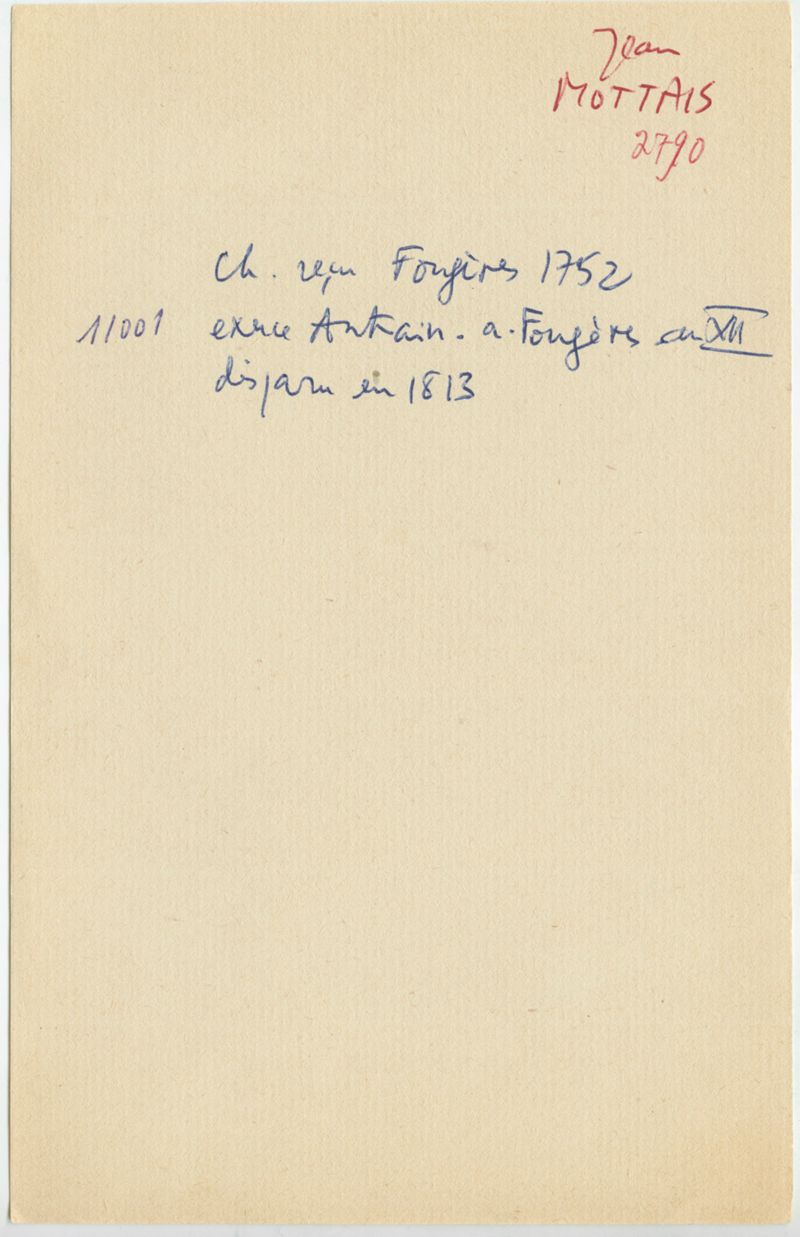 Jean
MOTTAIS
2790
Ch. reçu Fougères 1752
11001 exerce Antrain. a. Fougères en XII
disparu en 1813